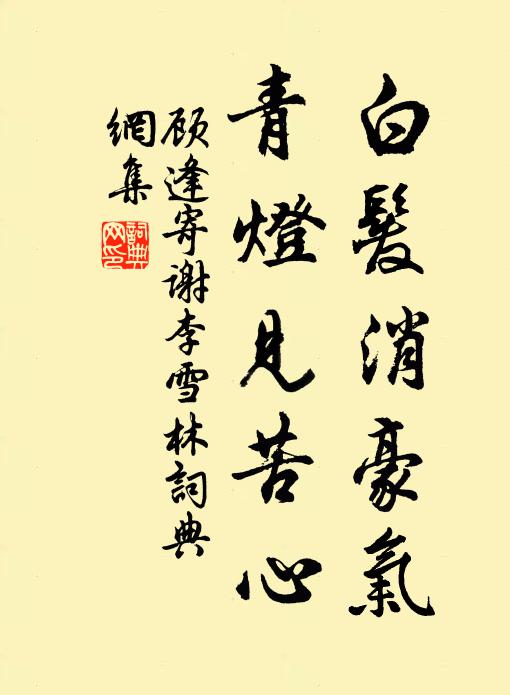 白髮消豪氣
青燈見苦心
顾逢寄谢李雪林詞典
網集
詞典
网印